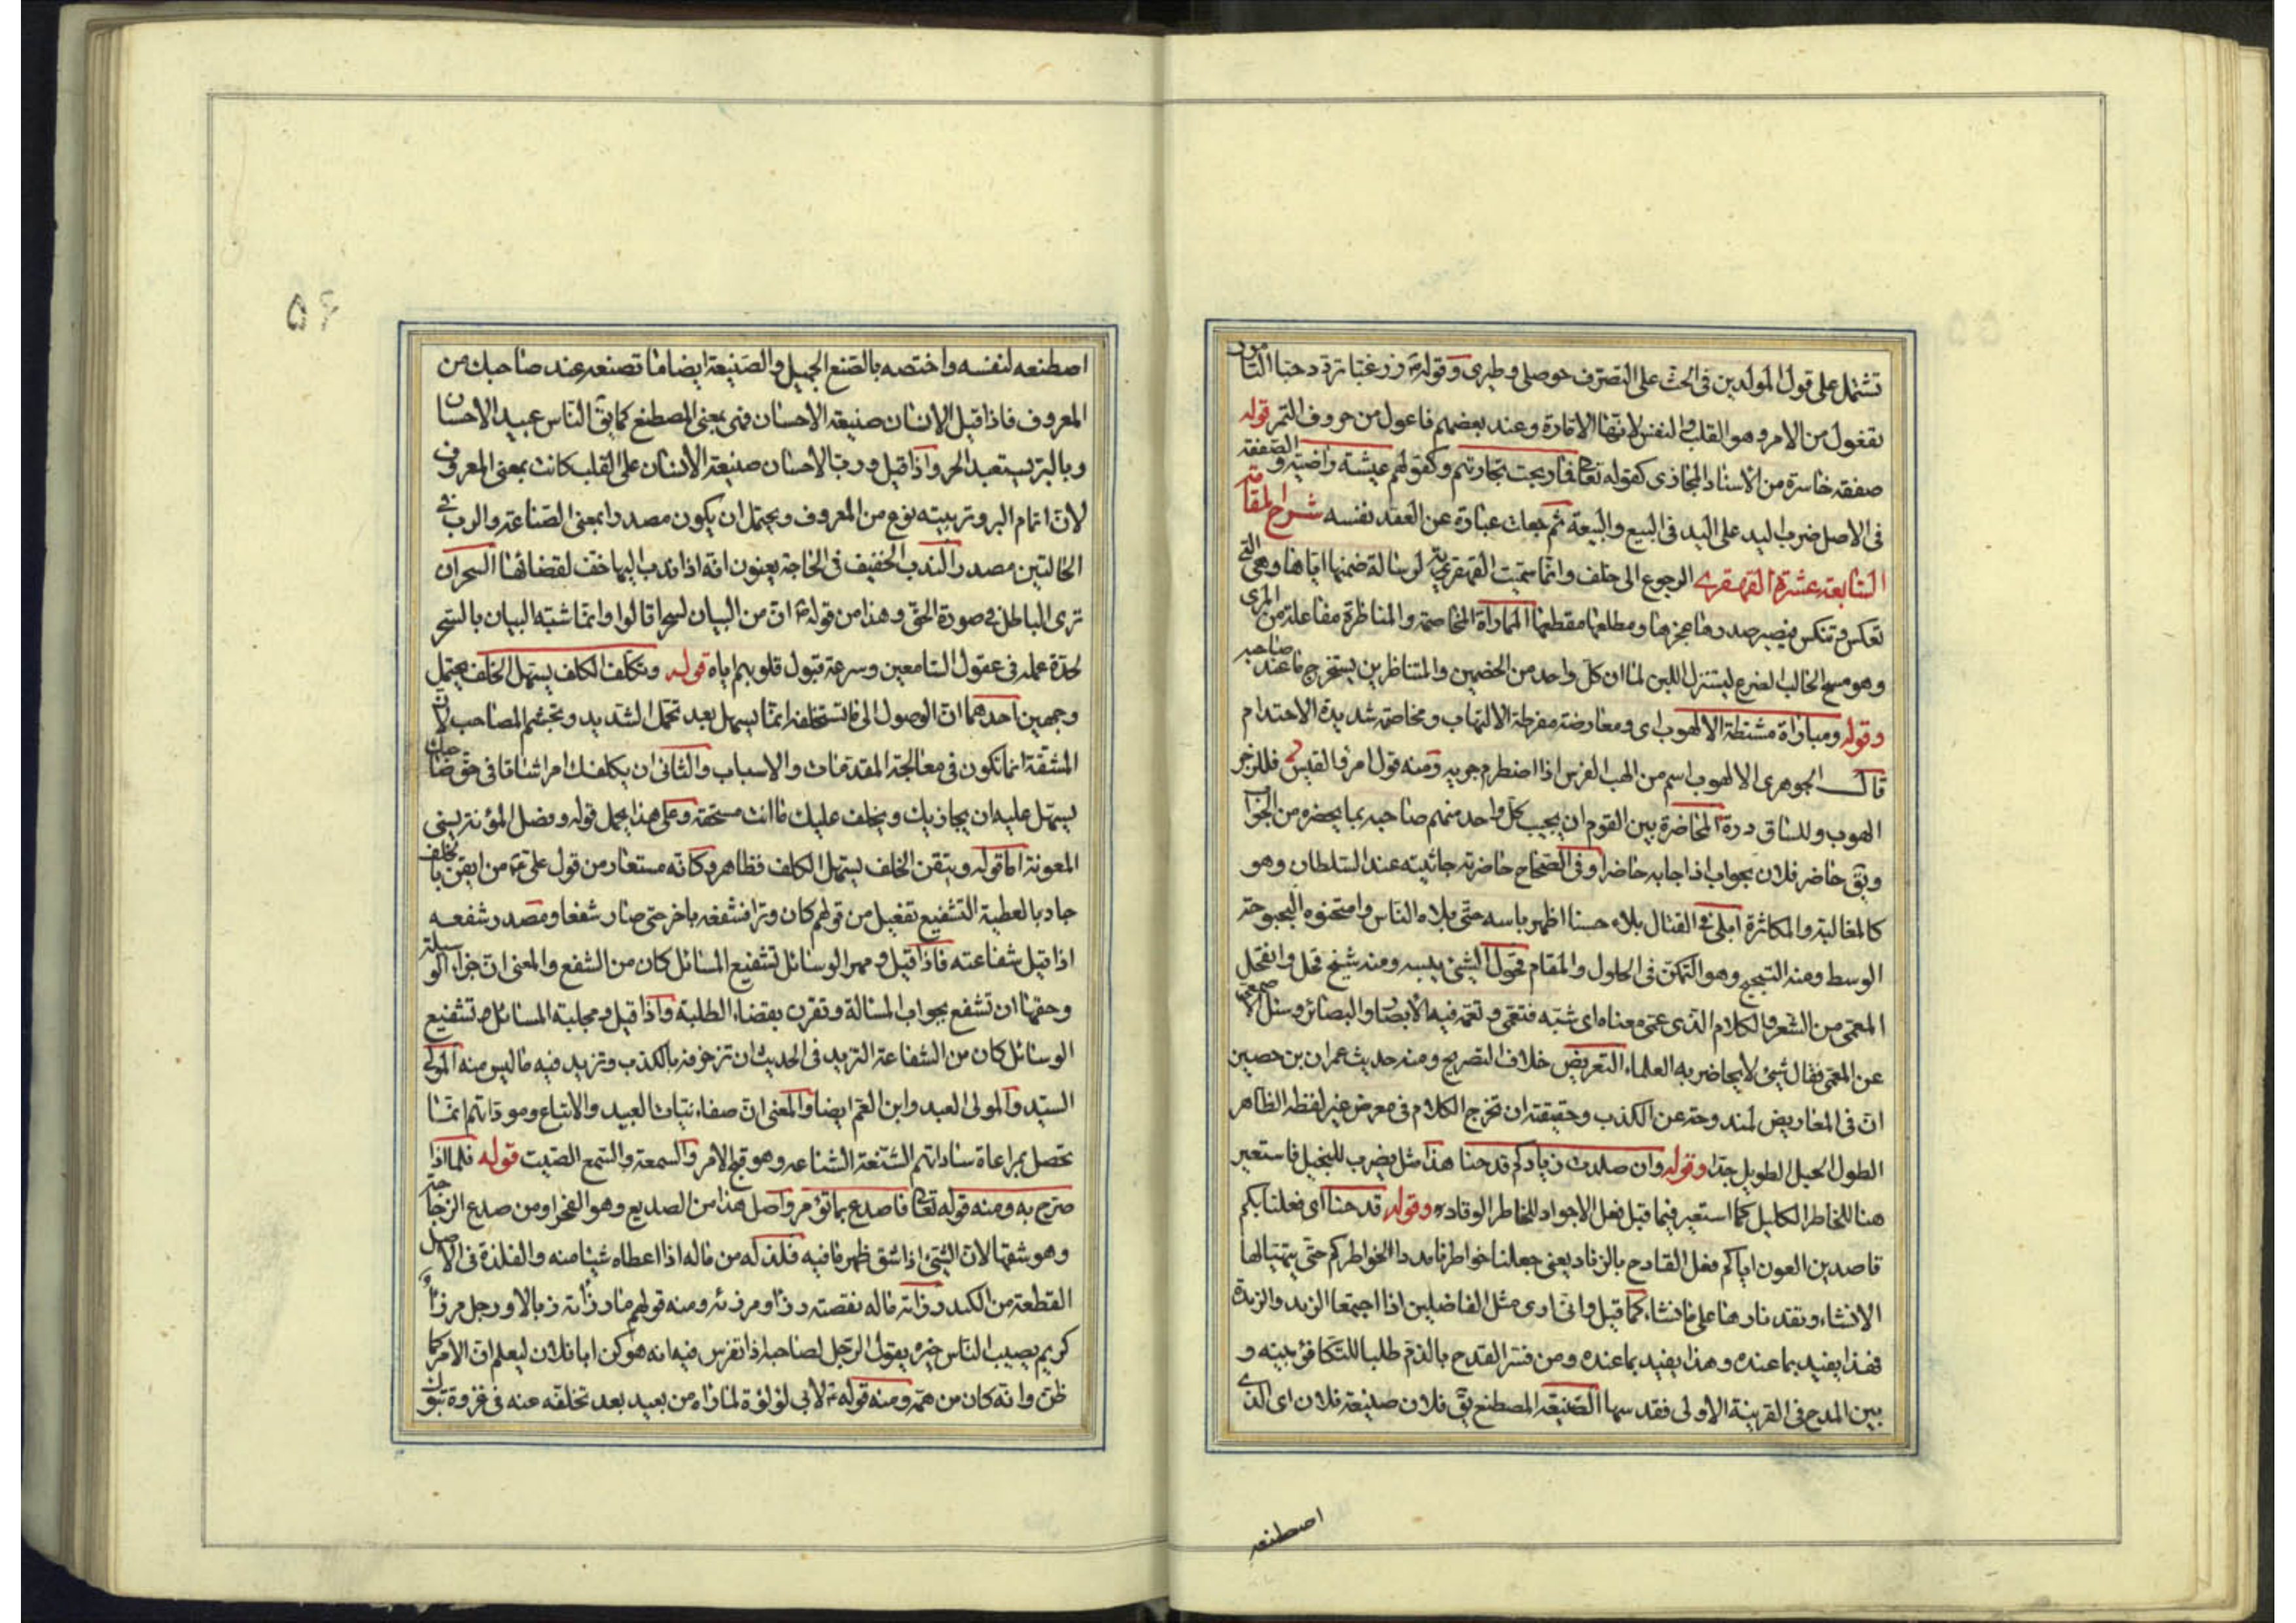 تشتمل على قول المولدين فى الحث على التصرف حوصلى وطيرى وقوله زر غبا تزدد حبا التامور
تفعول من الامر وهو القلب والنفس لانها الامارة وعند بعضهم فاعول من حروف التمر قوله
صفقة خاسرة من الاسناد المجازى كقوله تعا فما ربحت تجارتهم وكقولهم عيشة راضية والصفقة
فى الاصل ضرب اليد على اليد فى البيع والبيعة ثم جعلت عبارة عن العقد نفسه شرح المقامة
السابعة عشرة القهقرى الرجوع الى خلف وانما سميت القهقرية لرسالة ضمنها اياها وهى التى
تعكس وتنكس فيصير صدرها عجزها ومطلعها مقطعها المماراة المخاصمة والمناظرة مفاعلة من المرى
وهو مسح الحالب الضرع ليستنزل اللبن لما ان كل واحد من الخصمين والمتناظرين يستخرج ما عند صاحبه
وقوله ومباراة مشتطة الالهوب اى ومعارضة مفرطة الالتهاب ومخاصمة شديدة الاحتدام
قال الجوهرى الالهوب اسم من الهب الفرس اذا اضطرم جريه ومنه قول امرؤ القيس فللزجر
الهوب وللساق درة المحاضرة بين القوم ان يجيب كل واحد منهم صاحبه بما يحضره من الجواب
ويق حاضر فلان بجواب اذا اجابه حاضرا وفى الصحاح حاضرته جاثيته عند السلطان وهو
كالمغالبة والمكاثرة ابلى فى القتال بلاء حسنا اظهر باسه حتى بلاه الناس وامتحنوه البحبوحة
الوسط ومنه التبحبح وهو التمكن فى الحلول والمقام قحول الشئ يبسه ومنه شيخ قحل وانقحل
المعمى من الشعر والكلام الذى عمى معناه اى شبه فتعمى وتعمه فيه الابصار والبصائر وسئل الاصمعى
عن المعمى فقال شئ لا يحاضر به العلماء التعريض خلاف التصريح ومنه حديث عمران بن حصين
ان فى المعاريض لمندوحة عن الكذب وحقيقته ان تخرج الكلام فى معرض غير لفظه الظاهر
الطول الحبل الطويل جدا وقوله وان صلدت زنادكم قدحنا هذا مثل يضرب للبخيل فاستعير
هنا للخاطر الكليل كما استعير فيما قبل فعل الاجواد للخاطر الوقاد وقوله قدحنا اى فعلنا بكم
قاصدين العون اياكم فعل القادح بالزناد يعنى جعلنا خواطرنا مددا لخواطركم حتى يتهيا لها
الانشاء وتقد نارها على ما نشاء كما قيل وانا رى مثل الفاضلين اذا اجتمعا الزند والزندة
فهذا يفيد بما عنده وهذا يفيد بما عنده ومن فسر القدح بالذم طلبا للتكافؤ بينه و
بين المدح فى القرينة الاولى فقد سها الصنيعة المصطنع يق فلان صنيعة فلان اى الذى
اصطنعه
۵۶
اصطنعه لنفسه واختصه بالصنع الجميل والصنيعة ايضا ما تصنعه عند صاحبك من
المعروف فاذا قيل الانسان صنيعة الاحسان فهى بمعنى المصطنع كما يق الناس عبيد الاحسان
وبالبر يستعبد الحر واذا قيل ورب الاحسان صنيعة الانسان على القلب كانت بمعنى المعروف
لان اتمام البر وتربيته نوع من المعروف ويحتمل ان يكون مصدرا بمعنى الصناعة والرب فى
الحالتين مصدر الندب الخفيف فى الحاجة يعنون انه اذا ندب اليها خف لقضائها السحر ان
ترى الباطل فى صورة الحق وهذا من قوله ان من البيان لسحرا قالوا وانما شبه البيان بالسحر
لحدة عمله فى عقول السامعين وسرعة قبول قلوبهم اياه قوله وتكلف الكلف يسهل الخلف يحتمل
وجهين احدهما ان الوصول الى ما تستخلفه انما يسهل بعد تحمل الشديد وتجشم المصاحب لان
المشقة انما تكون فى معالجة المقدمات والاسباب والثانى ان يكلفك امرا شاقا فى حق صاحبك
يسهل عليه ان يجازيك ويخلف عليك ما انت مستحقه وعلى هذا يحمل قوله وفضل المؤنة يسنى
المعونة اما قوله وتيقن الخلف يسهل الكلف فظاهر وكانه مستعار من قول على من ايقن بالخلف
جاد بالعطية التشفيع تفعيل من قولهم كان وترا فشفعه باخر حتى صار شفعا ومصدر شفعه
اذا قبل شفاعته فاذا قيل ومهر الوسائل تشفيع المسائل كان من الشفع والمعنى ان جزاء الوسيلة
وحقها ان تشفع بجواب المسالة وتقرن بقضاء الطلبة واذا قيل ومجلبة المسائل تشفيع
الوسائل كان من الشفاعة التزيد فى الحديث ان تزخرفه بالكذب وتزيد فيه ما ليس منه المولى
السيد والمولى العبد وابن العم ايضا والمعنى ان صفاء نيات العبيد والاتباع ومودتهم انما
تحصل بمراعاة ساداتهم الشنعة الشناعة وهو قبح الامر والسمعة والسمع الصيت قوله فلما اذا
صرح به ومنه قوله تعا فاصدع بما تؤمر واصل هذا من الصديع وهو الفجر او من صدع الزجاجة
وهو شقها لان الشئ اذا شق ظهر ما فيه فلذ له من ماله اذا اعطاه شيئا منه والفلذة فى الاصل
القطعة من الكبد ورزاته ماله نقصته رزاء ومرزئة ومنه قولهم ما رزاته زبالا ورجل مرزا
كريم يصيب الناس خيره يقول الرجل لصاحبه اذا تفرس فيه انه هو كن ابا فلان ليعلم ان الامر كما
ظن وانه كان من همه ومنه قوله لابى لؤلؤة لما راه من بعيد بعد تخلفه عنه فى غزوة تبوك